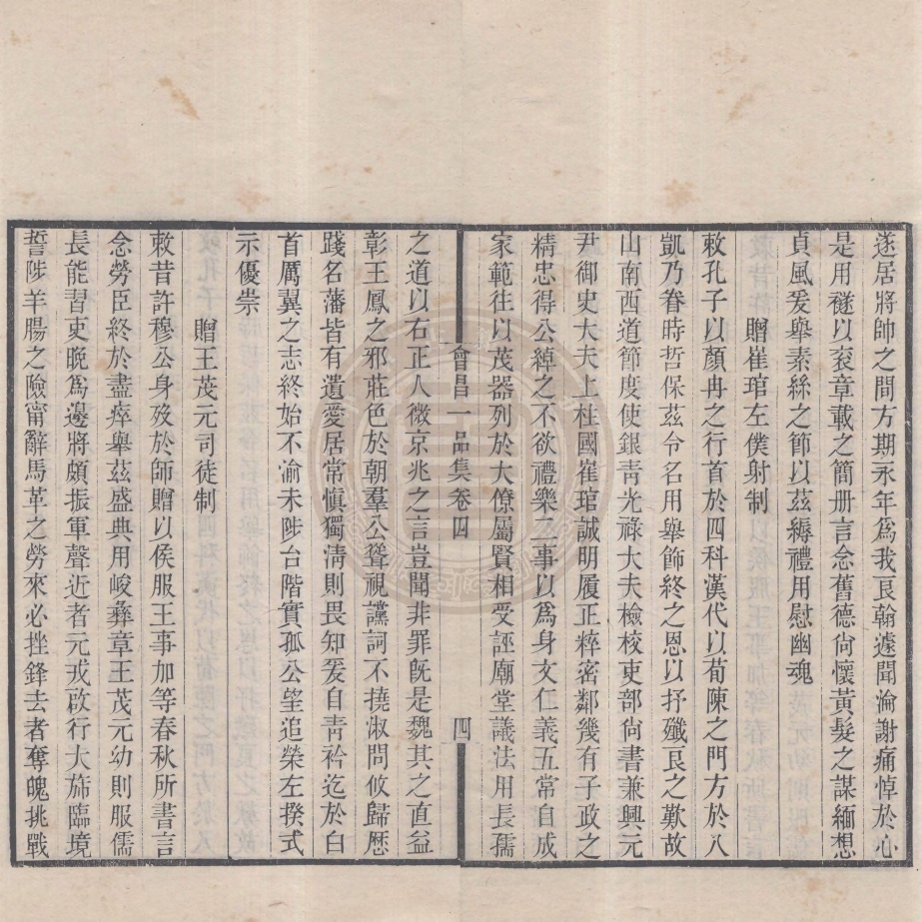 遂居將帥之間方期永年爲我良翰遽聞淪謝痛悼於心
是用襚以衮章載之簡册言念舊德尙懷黃髮之謀緬想
貞風爰舉素絲之節以茲縟禮用慰幽魂
贈崔琯左僕射制
敕孔子以顏冉之行首於四科漢代以荀陳之門方於八
凱乃眷時哲保茲令名用舉飾終之恩以抒殲良之歎故
山南西道節度使銀青光祿大夫檢校吏部尙書兼興元
尹御史大夫上柱國崔琯誠明履正粹密鄰幾有子政之
精忠得公綽之不欲禮樂二事以爲身文仁義五常自成
家範往以茂器列於大僚屬賢相受誣廟堂議法用長孺
會昌一品集卷四
四
之道以右正人微京兆之言豈聞非罪旣是魏其之直益
彰王鳳之邪莊色於朝羣公聳視讜詞不撓淑問攸歸歷
踐名藩皆有遺愛居常愼獨淸則畏知爰自靑衿迄於白
首厲翼之志終始不渝未陟台階實孤公望追榮左揆式
示優崇
贈王茂元司徒制
敕昔許穆公身歿於師贈以侯服王事加等春秋所書言
念勞臣終於盡瘁舉茲盛典用峻彝章王茂元幼則服儒
長能習吏晚爲邊將頗振軍聲近者元戎啟行大旆臨境
誓陟羊腸之險甯辭馬革之勞來必挫鋒去者奪魄挑戰